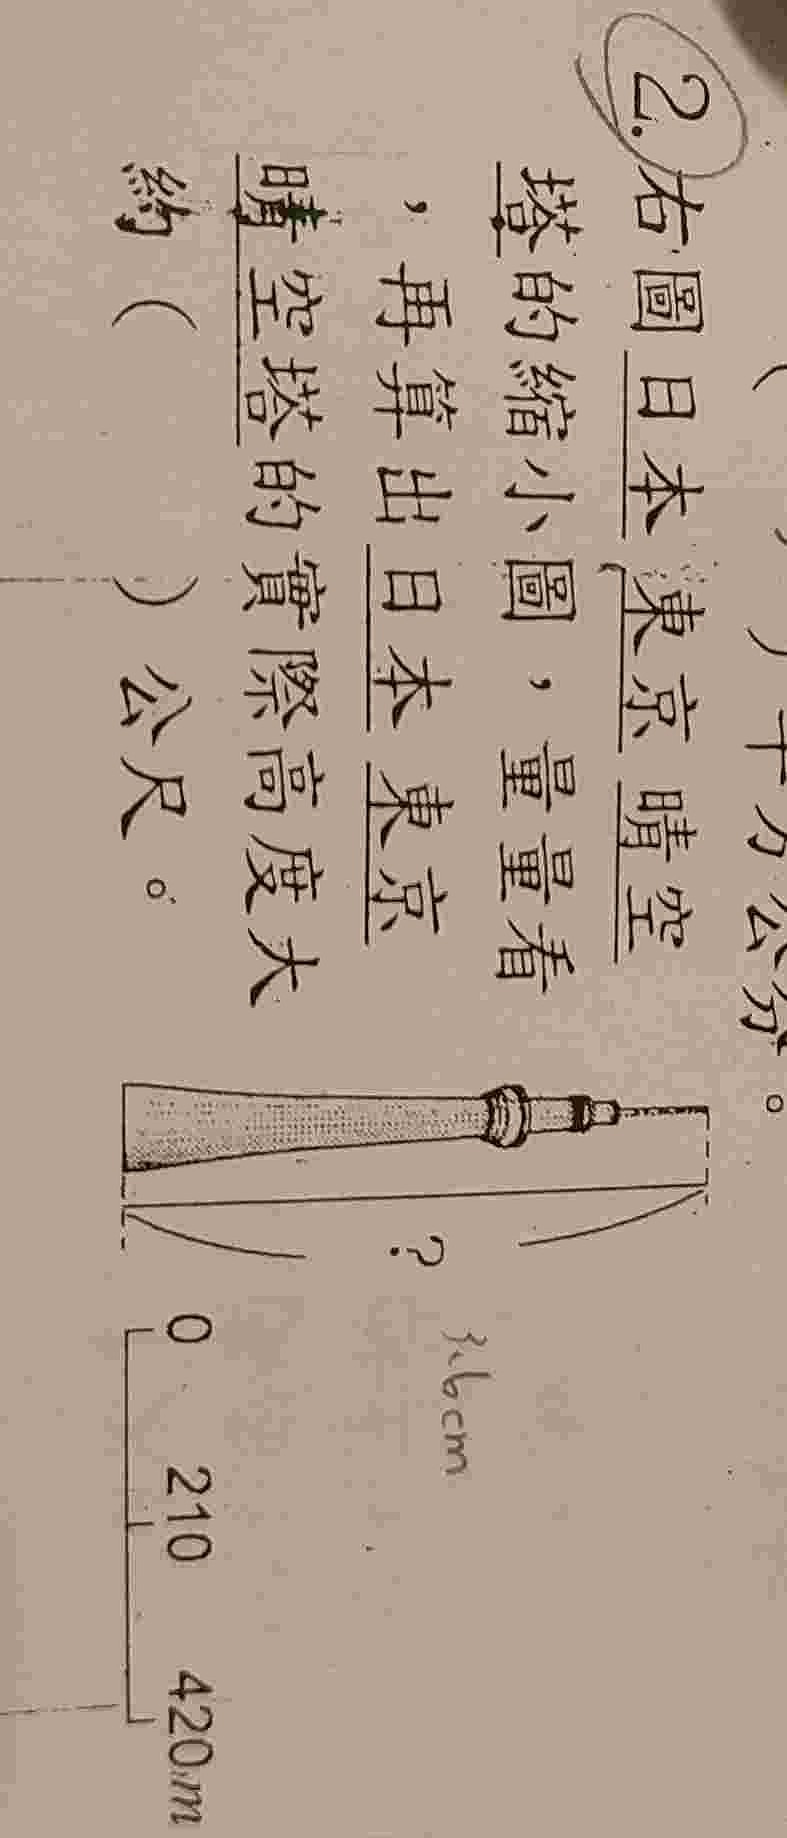 ( ) 十 萬 公分。
2. 右圖日本東京晴空
塔的縮小圖,量量看
,再算出日本東京
晴空塔的實際高度大
約( )公尺。
?
3.6cm
0 210 420m